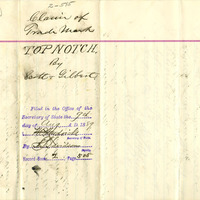 2-515
Claim of
Trade Mark
TOP NOTCH.
By
Scott & Gilbert
Filed in the Office of the
Secretary of State the 9th
day of A.D. 18
Secretary of State
By
Deputy
Record Book 4 Page 515